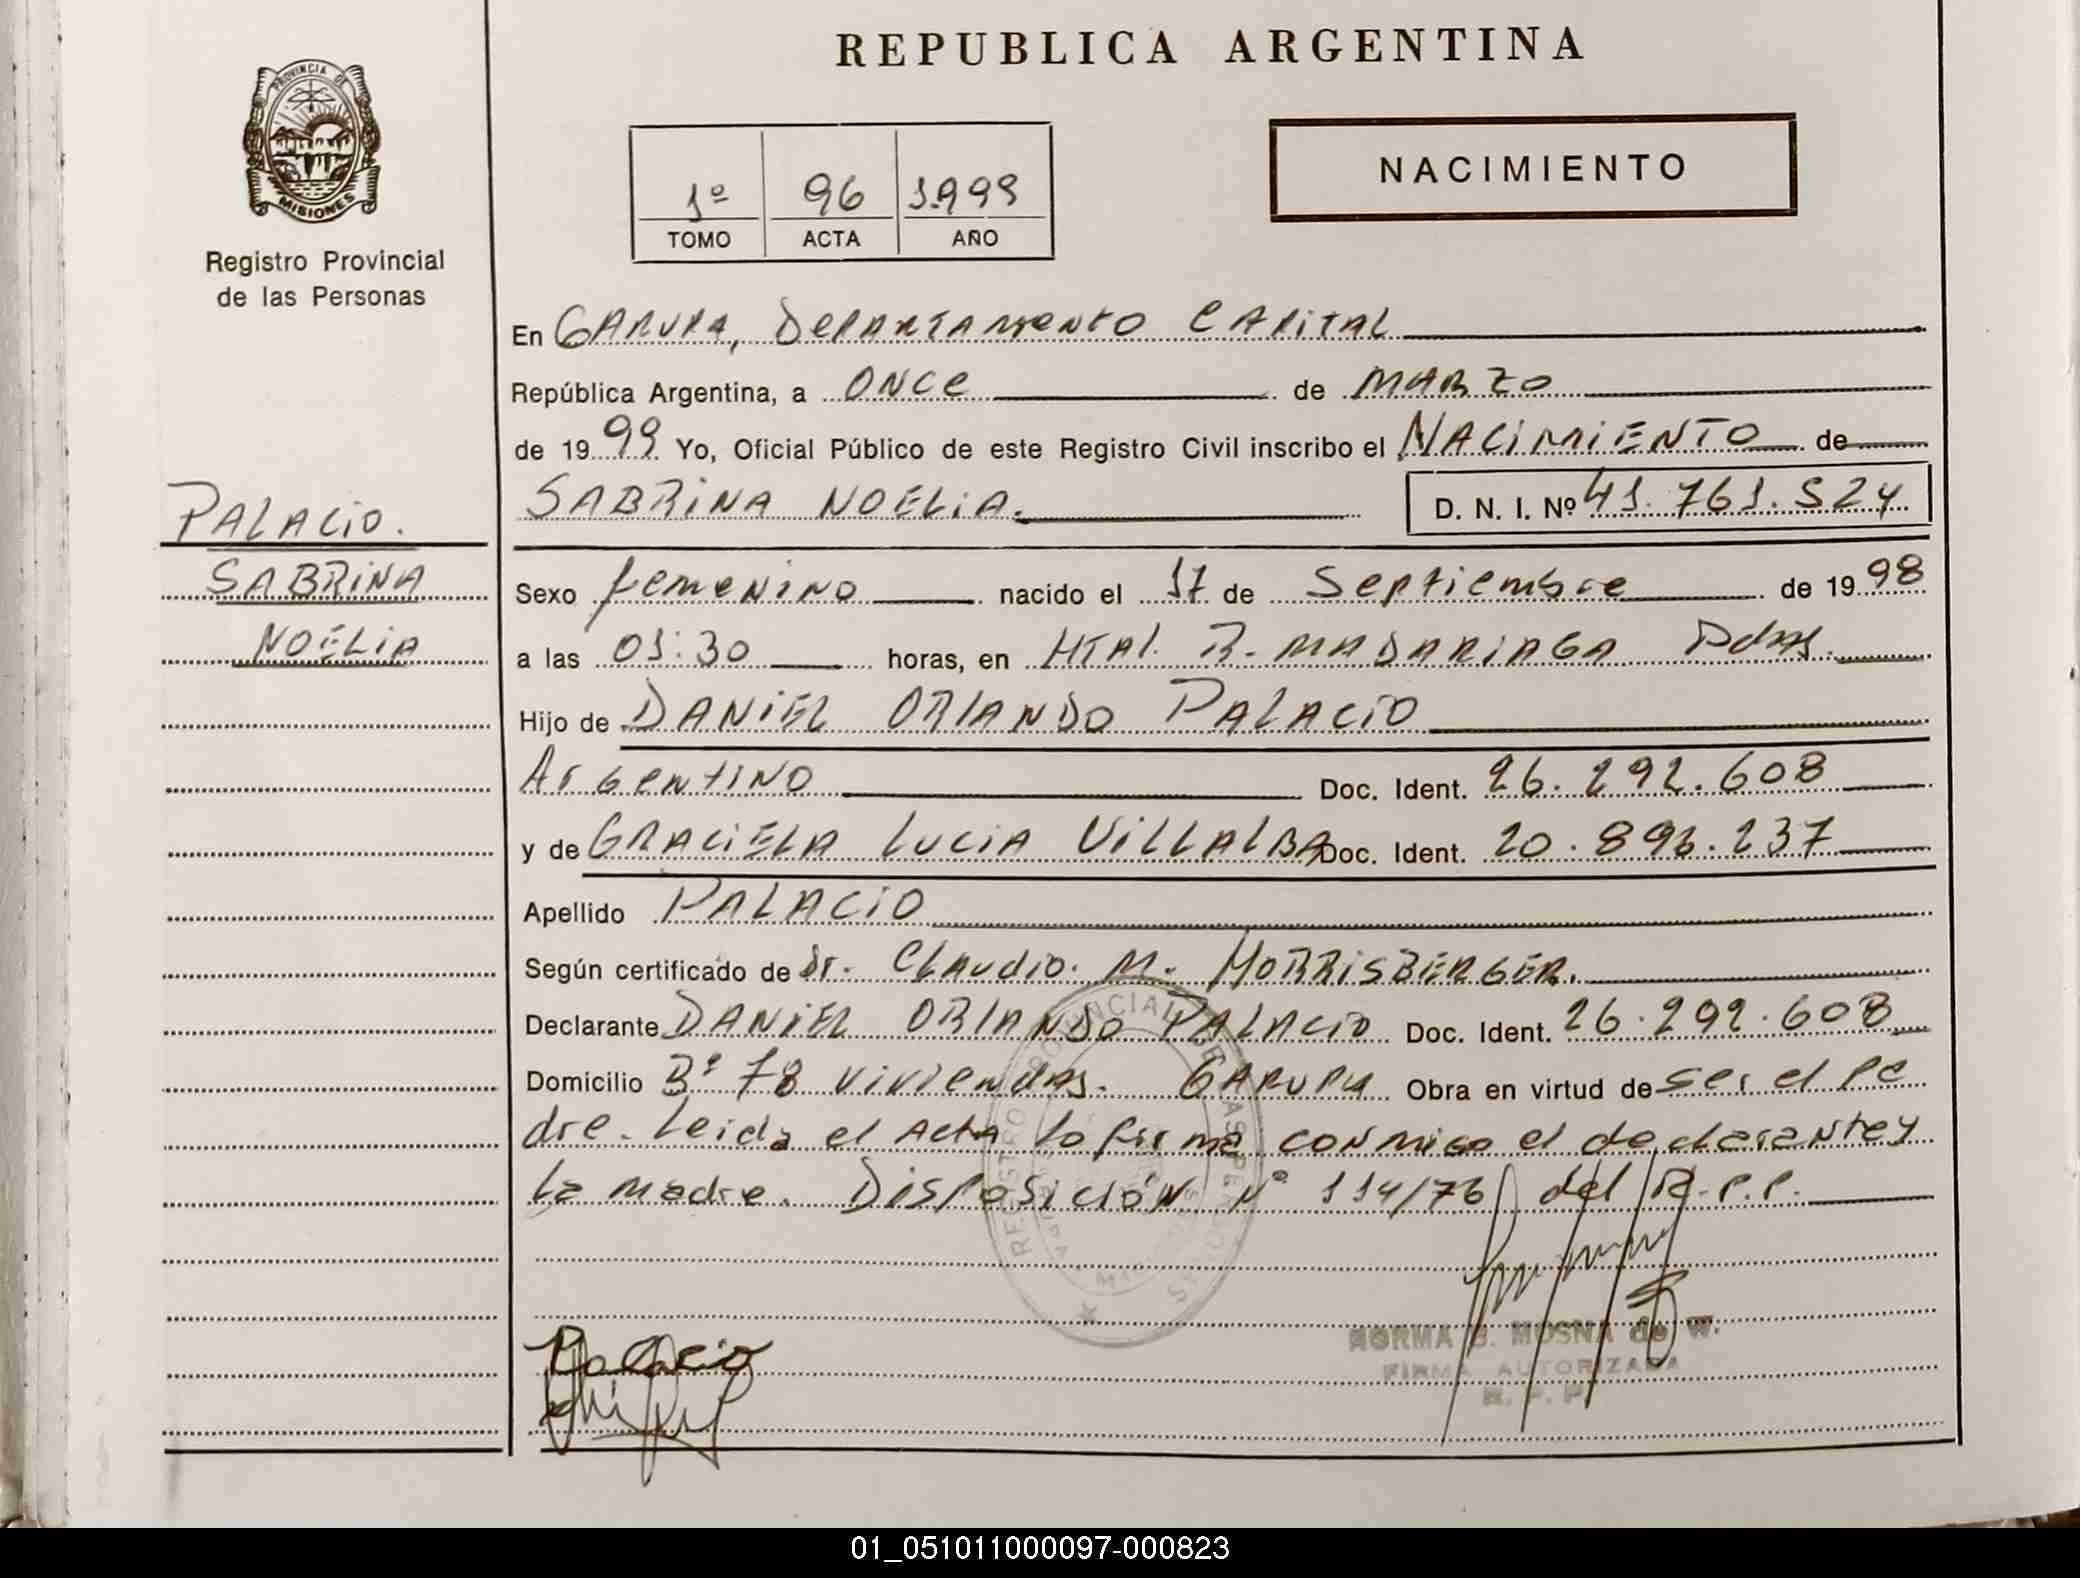 REPUBLICA ARGENTINA
PROVINCIA DE
MISIONES
Registro Provincial
de las Personas
1º 96 1.999
TOMO ACTA AÑO
NACIMIENTO
En GARUPA, DEPARTAMENTO CAPITAL
República Argentina, a ONCE de MARZO
de 1999 Yo, Oficial Público de este Registro Civil inscribo el NACIMIENTO de
SABRINA NOELIA. D. N. I. Nº 41.761.524
PALACIO.
SABRINA
NOELIA
Sexo femenino nacido el 17 de Septiembre de 1998
a las 01:30 horas, en HTAL. R. MADARIAGA Pdas.
Hijo de DANIEL ORLANDO PALACIO
Argentino Doc. Ident. 26.292.608
y de GRACIELA LUCIA VILLALBA Doc. Ident. 20.896.237
Apellido PALACIO
Según certificado de Dr. CLAUDIO. M. MORRISBERGER.
Declarante DANIEL ORLANDO PALACIO Doc. Ident. 26.292.608
Domicilio Bº 78 viviendas. GARUPA Obra en virtud de ser el pa
dre. Leida el Acta la firma conmigo el declarante y
la madre. Disposición Nº 114/76 del R.P.P.
REGISTRO PROVINCIAL DE LAS PERSONAS
MISIONES
Palacio
NORMA B. MOSNA de W.
FIRMA AUTORIZADA
R. P. P.
01_051011000097-000823